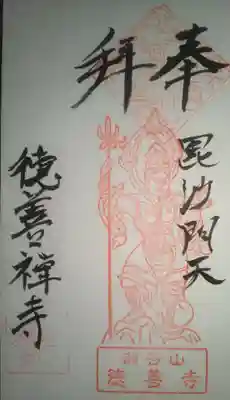 奉拜
毘沙門天
徳善禅寺
山
徳善寺